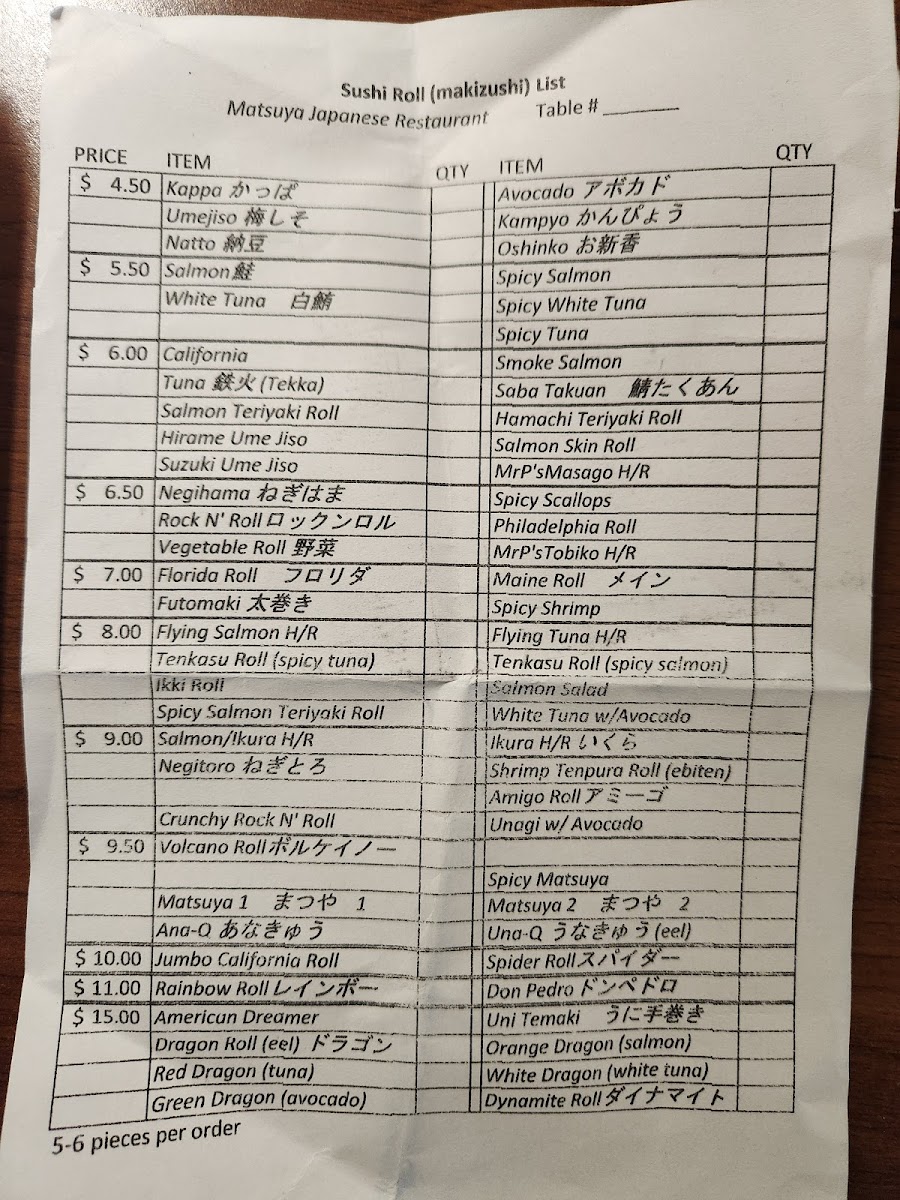 Sushi Roll (makizushi) List
Matsuya Japanese Restaurant Table # ________
PRICE ITEM QTY ITEM QTY
$ 4.50 Kappa かっぱ Avocado アボカド
Umejiso 梅しそ Kampyo かんぴょう
Natto 納豆 Oshinko お新香
$ 5.50 Salmon 鮭 Spicy Salmon
White Tuna 白鮪 Spicy White Tuna
Spicy Tuna
$ 6.00 California Smoke Salmon
Tuna 鉄火 (Tekka) Saba Takuan 鯖たくあん
Salmon Teriyaki Roll Hamachi Teriyaki Roll
Hirame Ume Jiso Salmon Skin Roll
Suzuki Ume Jiso MrP'sMasago H/R
$ 6.50 Negihama ねぎはま Spicy Scallops
Rock N' Roll ロックンロル Philadelphia Roll
Vegetable Roll 野菜 MrP'sTobiko H/R
$ 7.00 Florida Roll フロリダ Maine Roll メイン
Futomaki 太巻き Spicy Shrimp
$ 8.00 Flying Salmon H/R Flying Tuna H/R
Tenkasu Roll (spicy tuna) Tenkasu Roll (spicy salmon)
Ikki Roll Salmon Salad
Spicy Salmon Teriyaki Roll White Tuna w/Avocado
$ 9.00 Salmon/Ikura H/R Ikura H/R いくら
Negitoro ねぎとろ Shrimp Tenpura Roll (ebiten)
Amigo Roll アミーゴ
Crunchy Rock N' Roll Unagi w/ Avocado
$ 9.50 Volcano Roll ボルケイノー
Spicy Matsuya
Matsuya 1 まつや 1 Matsuya 2 まつや 2
Ana-Q あなきゅう Una-Q うなきゅう (eel)
$ 10.00 Jumbo California Roll Spider Roll スパイダー
$ 11.00 Rainbow Roll レインボー Don Pedro ドンペドロ
$ 15.00 American Dreamer Uni Temaki うに手巻き
Dragon Roll (eel) ドラゴン Orange Dragon (salmon)
Red Dragon (tuna) White Dragon (white tuna)
Green Dragon (avocado) Dynamite Roll ダイナマイト
5-6 pieces per order